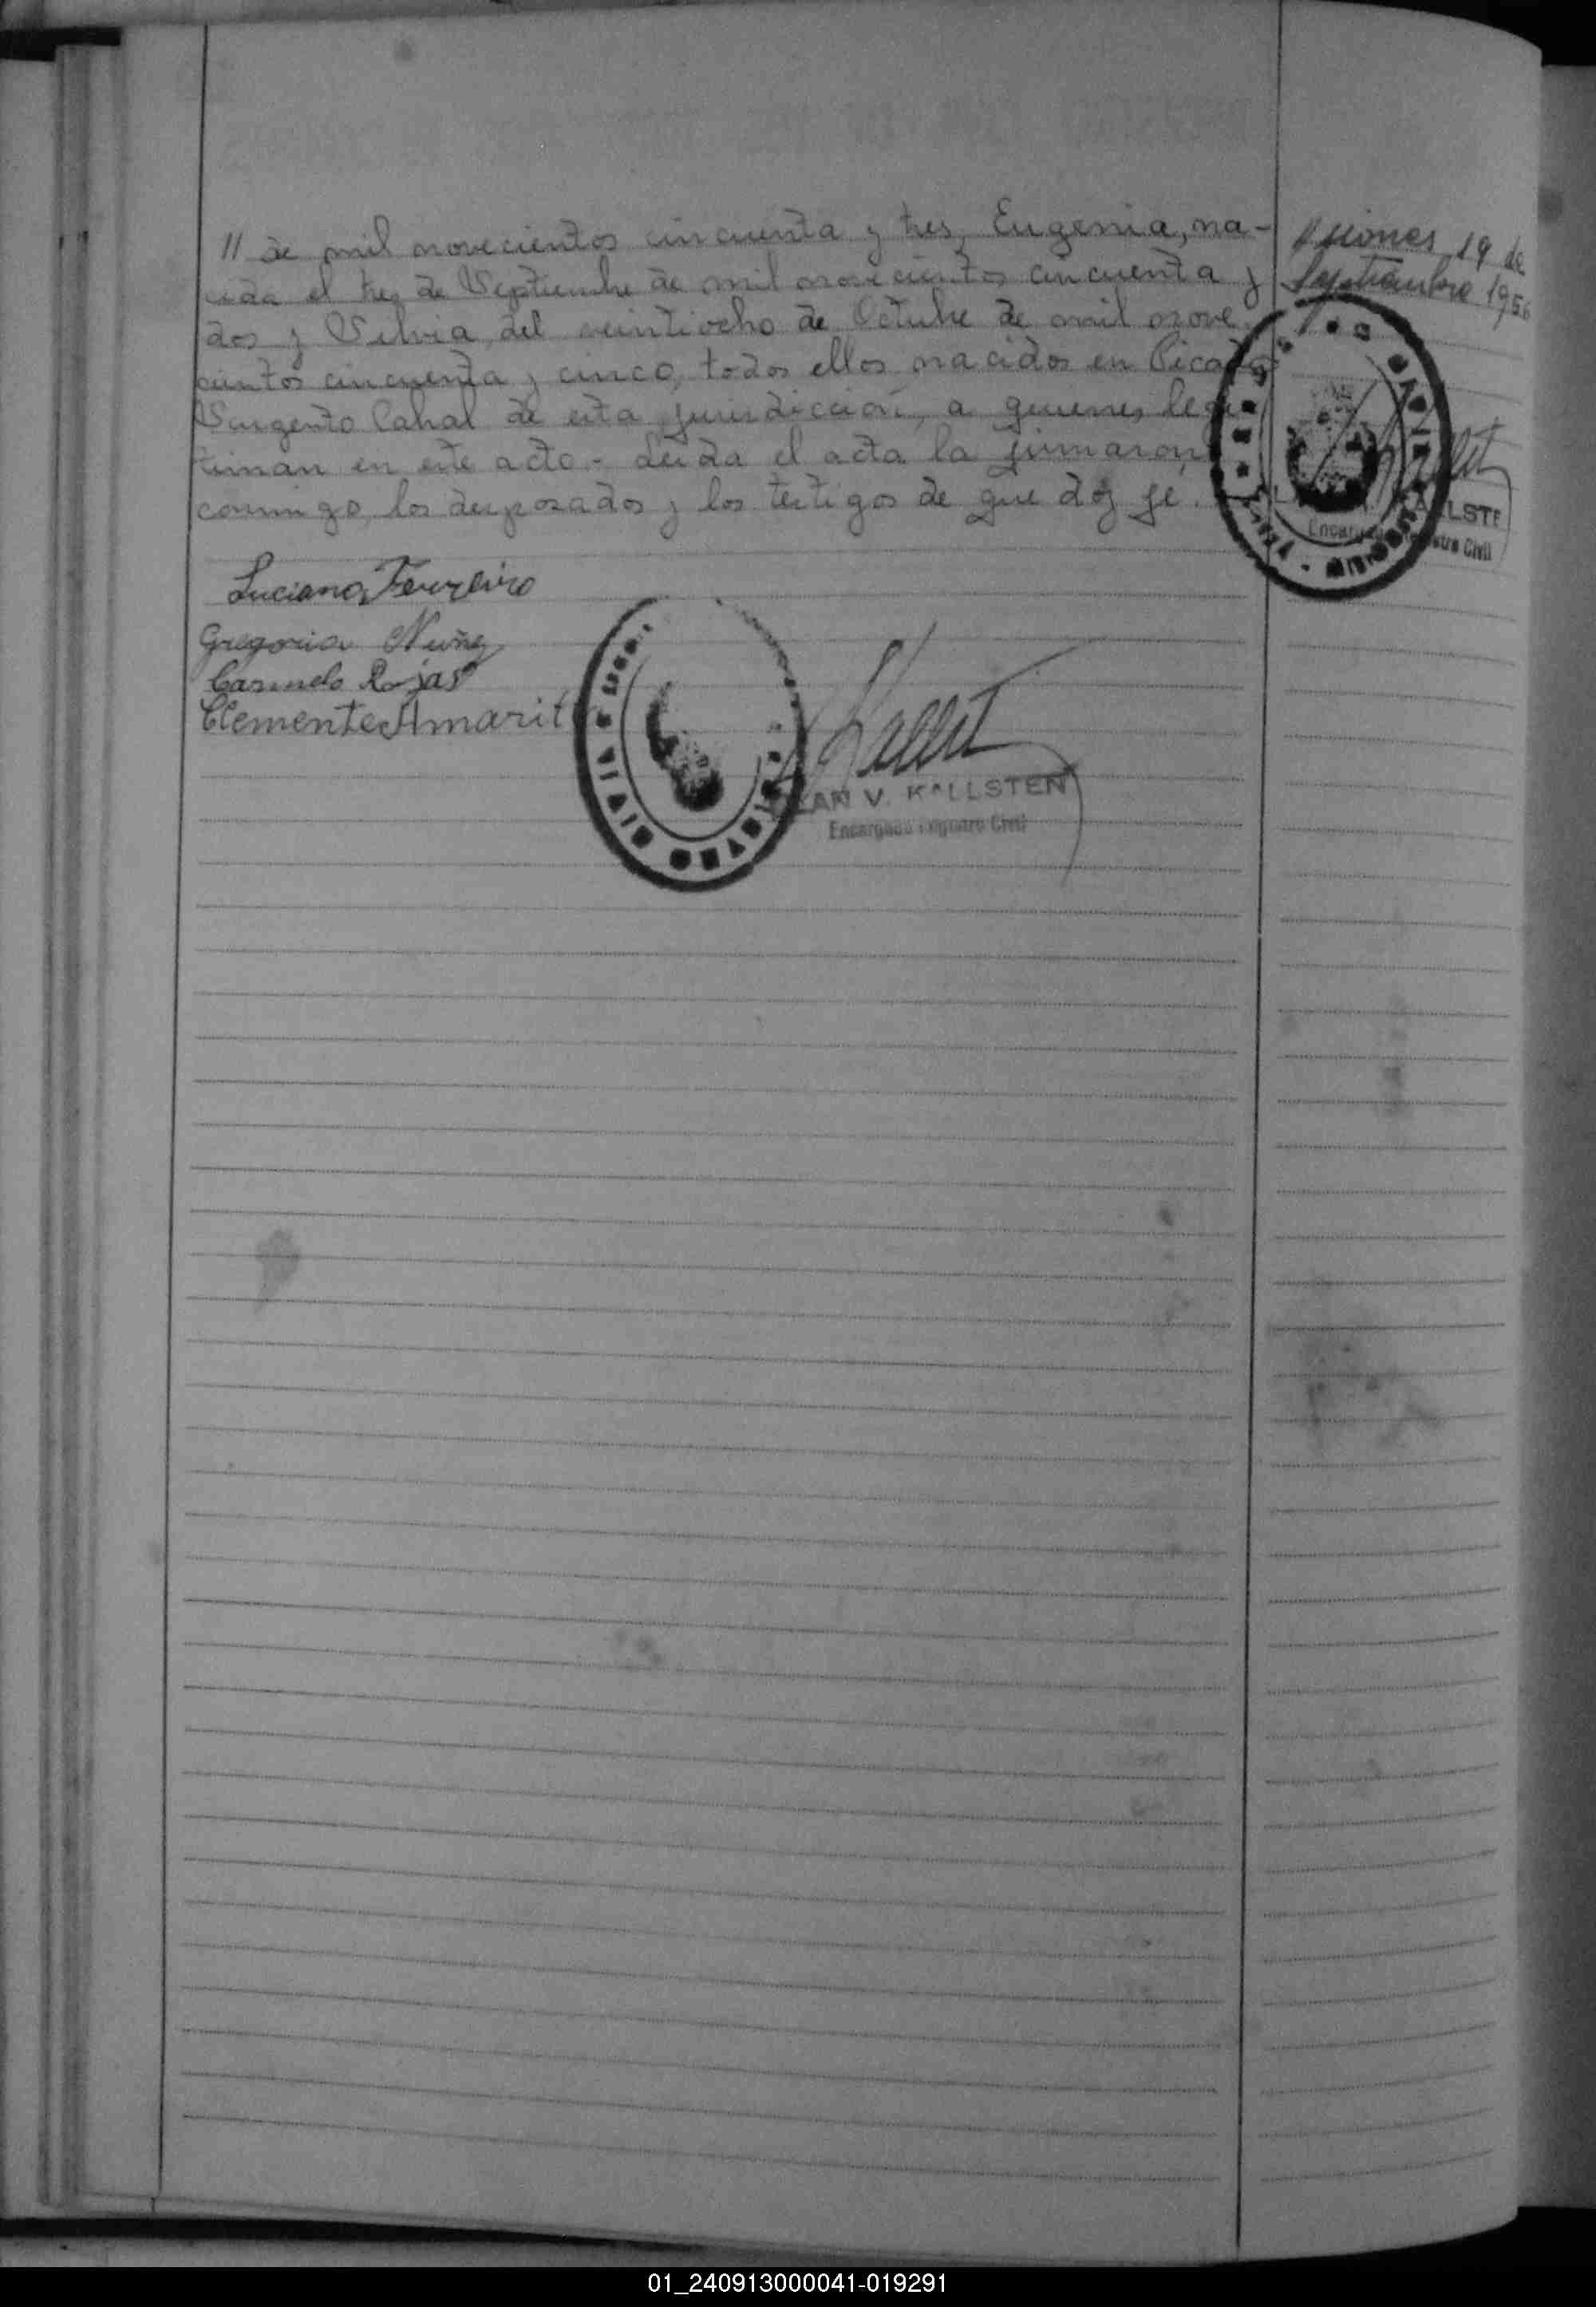 // de mil novecientos cincuenta y tres, Eugenia, na-
cida el tres de Septiembre de mil novecientos cincuenta y
dos y Silvia, del veintiocho de Octubre de mil nove
cientos cincuenta y cinco, todos ellos nacidos en Picada
Sargento Cabral de esta jurisdicción, a quienes legi
timan en este acto.- Leida el acta la firmaron
conmigo, los desposados y los testigos de que doy fé.
Luciano Ferreiro
Gregoria Nuñez
Carmelo Rojas
Clemente Amarit
V. KALLSTEN
Encargado Registro Civil
19 de
Septiembre 1956
Encargado Registro Civil